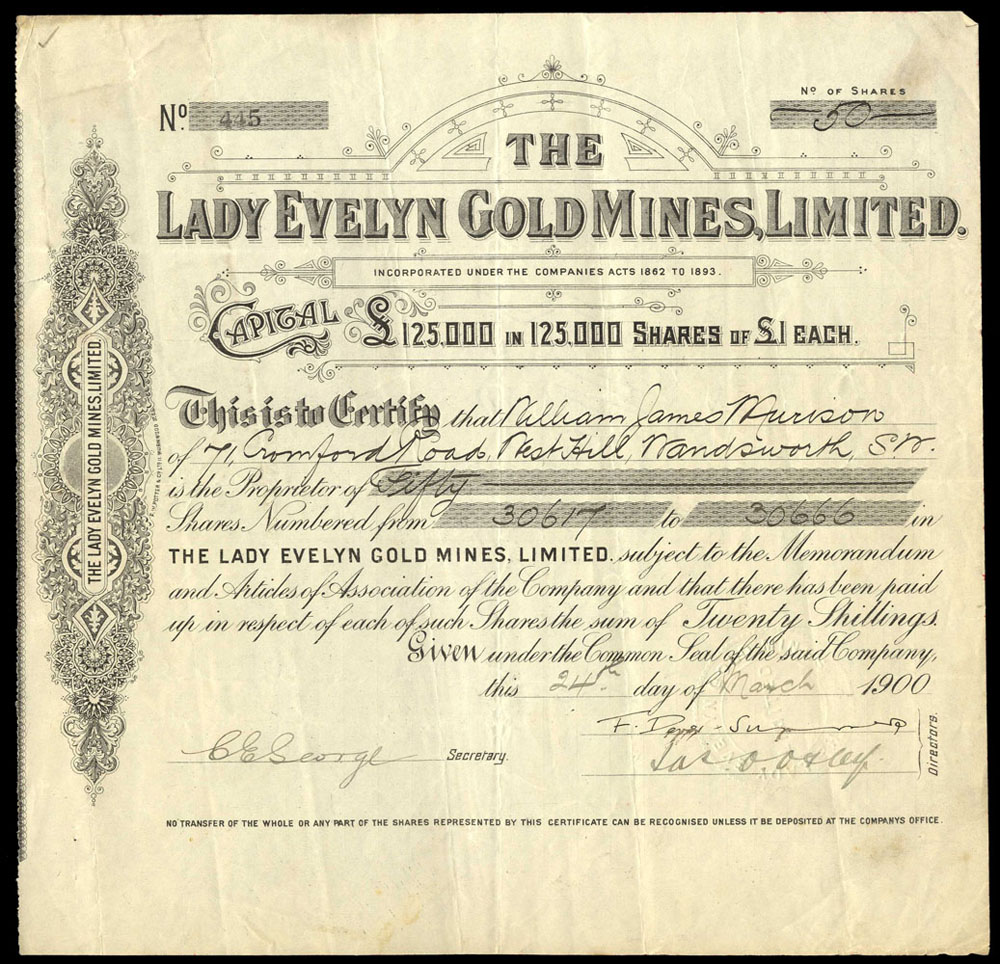 No. 445
No OF SHARES
50
THE
LADY EVELYN GOLD MINES, LIMITED.
INCORPORATED UNDER THE COMPANIES ACTS 1862 TO 1893.
CAPITAL £125,000 IN 125,000 SHARES OF £1 EACH.
This is to Certify that William James Murison
of 71, Cromford Road, West Hill, Wandsworth, S.W.
is the Proprietor of Fifty
Shares Numbered from 30617 to 30666 in
THE LADY EVELYN GOLD MINES, LIMITED. subject to the Memorandum
and Articles of Association of the Company and that there has been paid
up in respect of each of such Shares the sum of Twenty Shillings.
Given under the Common Seal of the said Company,
this 24th day of March 1900
C E George Secretary.
Directors.
NO TRANSFER OF THE WHOLE OR ANY PART OF THE SHARES REPRESENTED BY THIS CERTIFICATE CAN BE RECOGNISED UNLESS IT BE DEPOSITED AT THE COMPANYS OFFICE.
THE LADY EVELYN GOLD MINES, LIMITED.